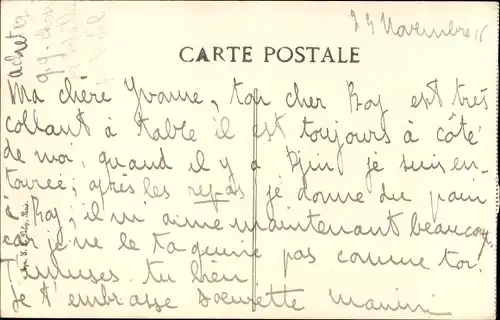 Novembre 16
CARTE POSTALE
Ma chère Yvonne, ton cher Roy est très
collant à table il est toujours à côté
de moi, quand il y a Djin je suis en-
tourée; après les repas je donne du pain
à Roy, il m'aime maintenant beaucoup
car je ne le taquine pas comme toi.
T'amuses tu bien
je t'embrasse soeurette
achet